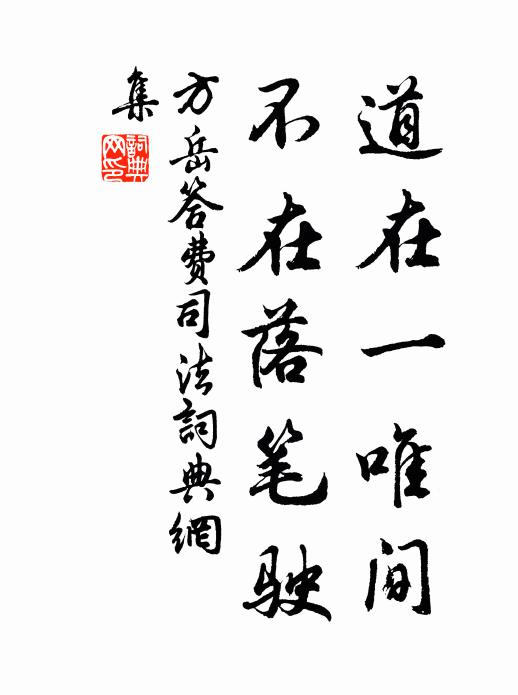 道在一唯间
不在落笔驶
方岳答費司法詞典網
集
詞典
网印